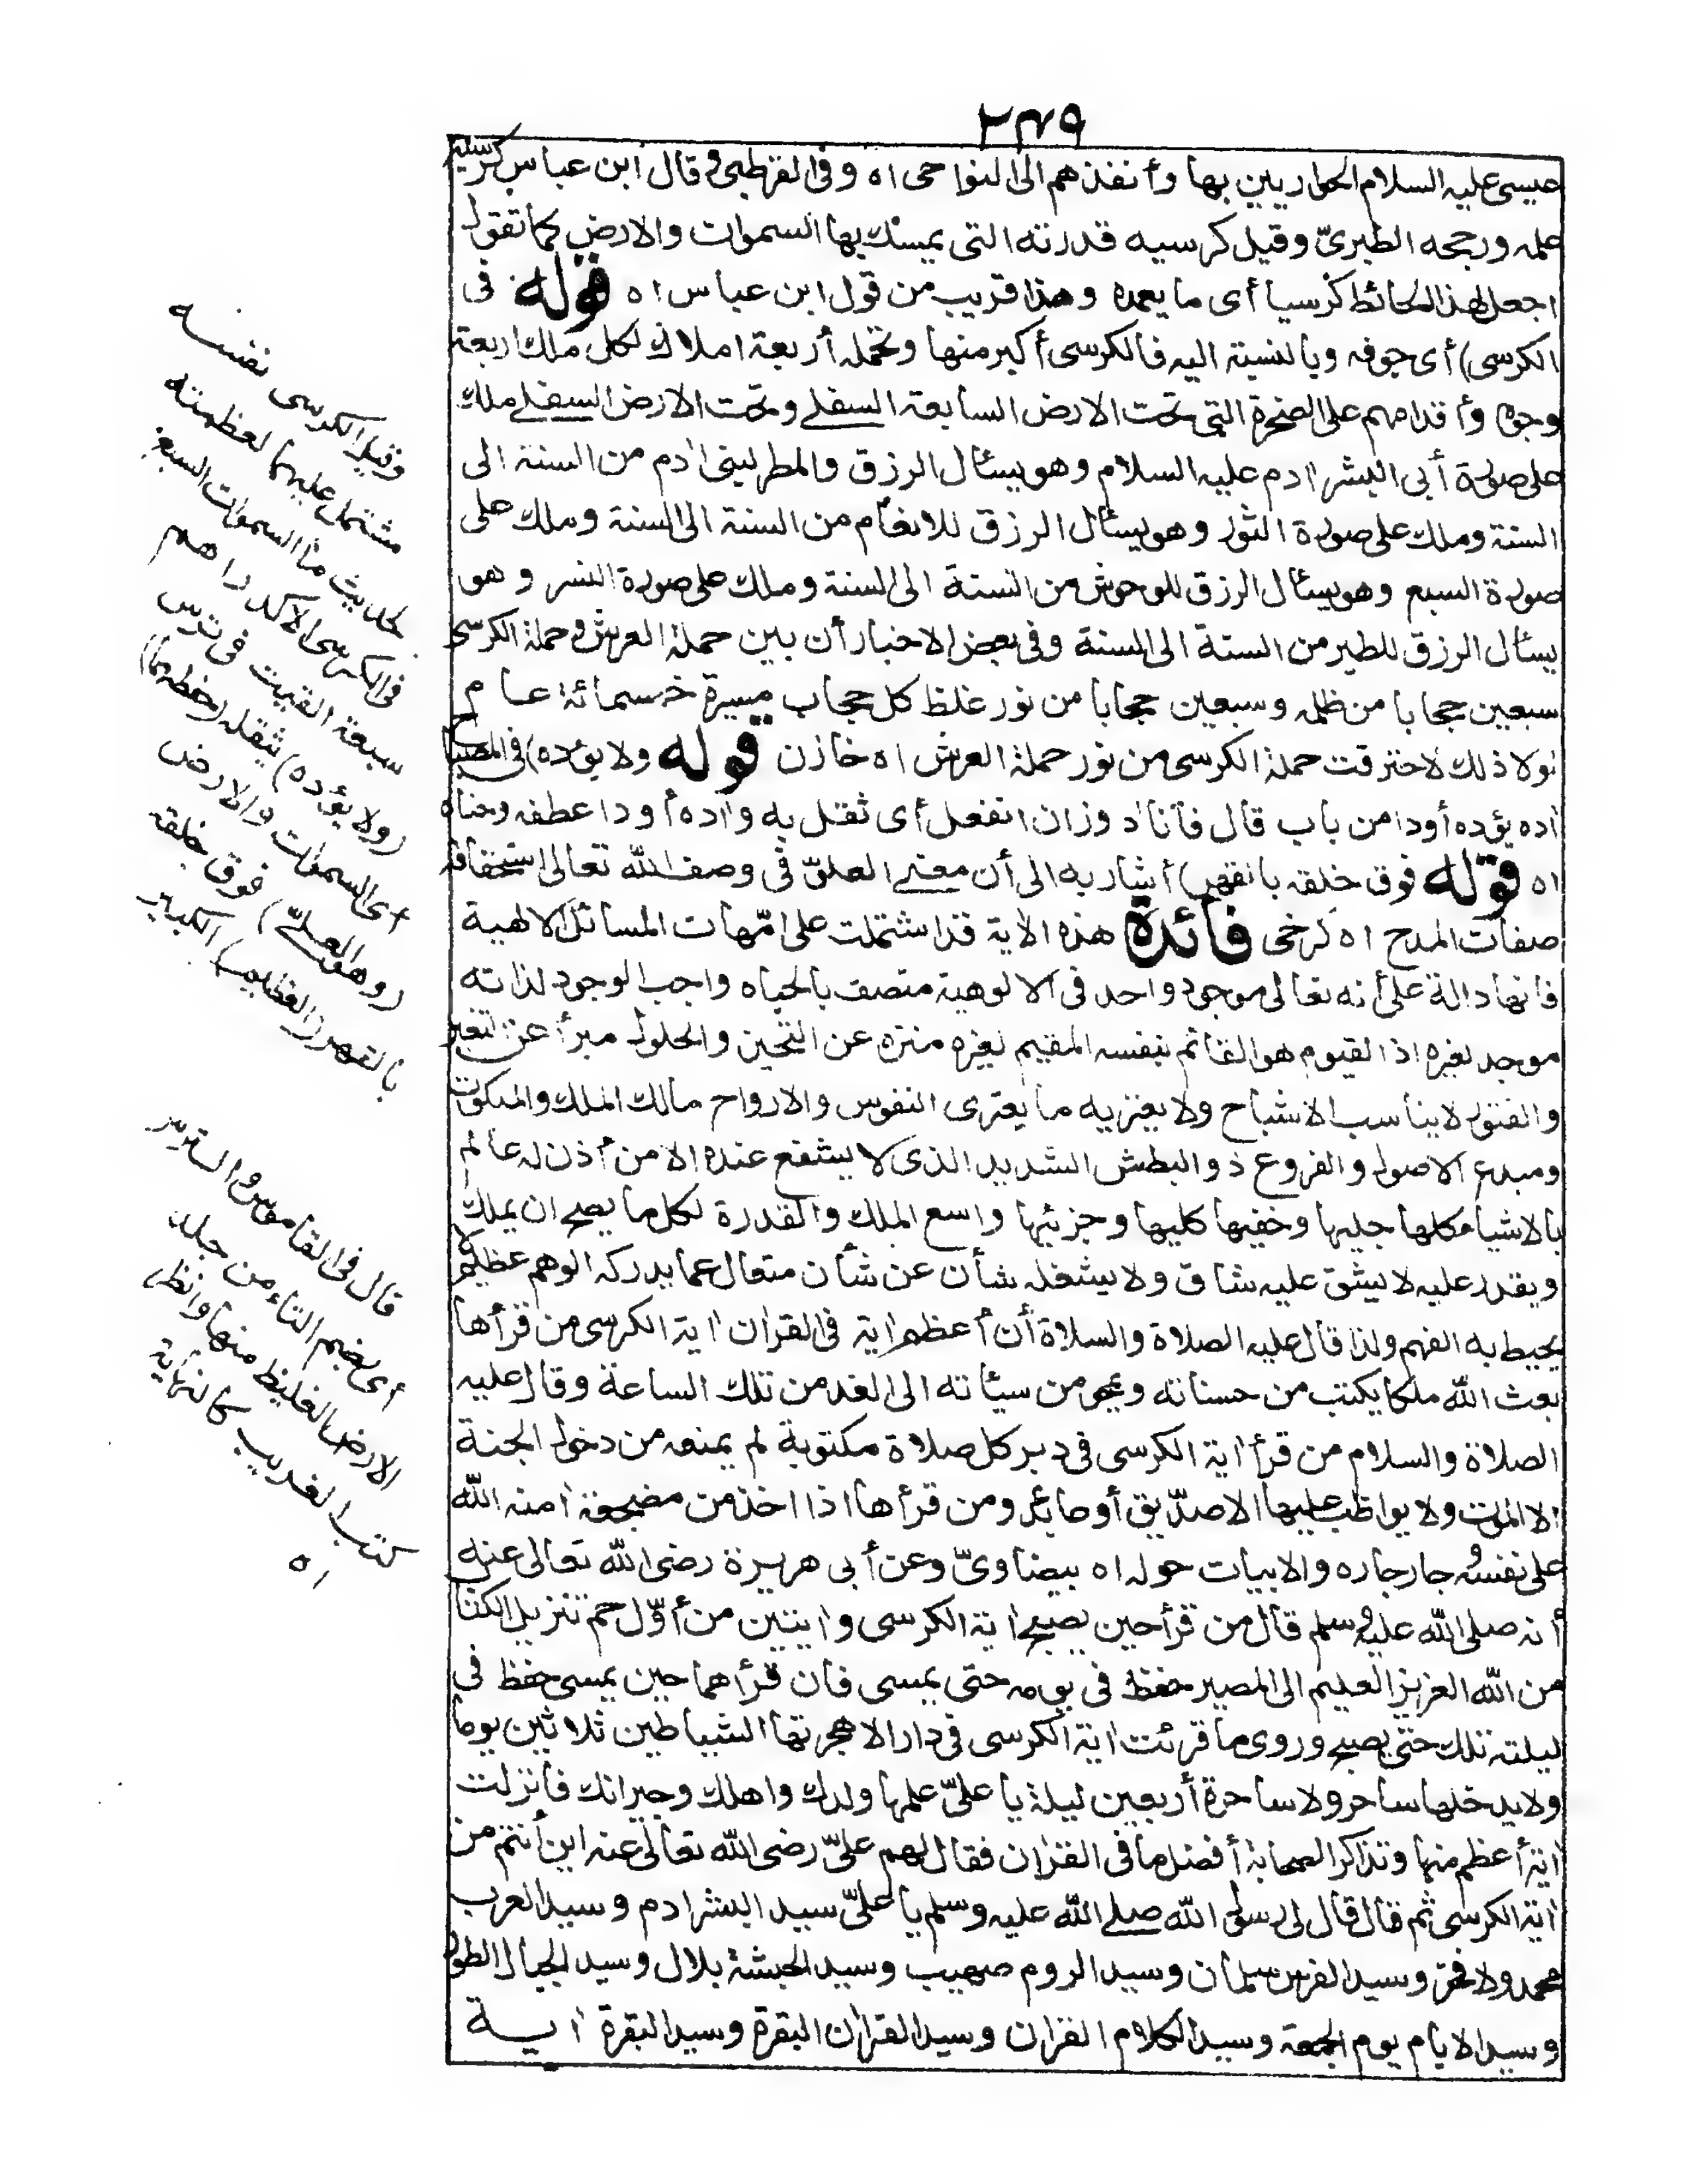 ٢٤٩
عيسى عليه السلام الحواريين بها وأنفذهم الى النواحى اه وفى القرطبى وقال ابن عباس كرسيه
علمه ورجحه الطبرىّ وقيل كرسيه قدرته التى يمسك بها السموات والارض كما تقول
اجعل لهذا الحائط كرسيا أى ما يعمده وهذا قريب من قول ابن عباس اه قوله فى
الكرسى) أى جوفه وبالنسبة اليه فالكرسى أكبر منها وتحمله أربعة املاك لكل ملك اربعة
وجوه وأقدامهم على الصخرة التى تحت الارض السابعة السفلى وتحت الارض السفلى ملك
على صورة أبى البشر ادم عليه السلام وهو يسئال الرزق والمطر لبنى ادم من السنة الى
السنة وملك على صورة الثور وهو يسئال الرزق للانعام من السنة الى السنة وملك على
صورة السبع وهو يسئال الرزق للوحوش من السنة الى السنة وملك على صورة النسر وهو
يسئال الرزق للطير من السنة الى السنة وفى بعض الاخبار أن بين حملة العرش وحملة الكرسى
سبعين حجابا من ظلمه وسبعين حجابا من نور غلظ كل حجاب مسيرة خمسمائة عام
لولا ذلك لاحترقت حملة الكرسى من نور حملة العرش اه خازن قوله ولا يؤده) فى المصباح
اده يؤده أودا من باب قال فانأد وزان انفعل أى ثقل به واده أودا عطفه وحناه
اه قوله فوق خلقه بالقهر) أشار به الى أن معنى العلوّ فى وصف الله تعالى استحقاقه
صفات المدح اه كرخى فائدة هذه الاية قد اشتملت على امّهات المسائل الالهية
فانها دالة على أنه تعالى موجود واحد فى الالوهية متصف بالحياه واجب الوجود لذاته
موجد لغيره اذ القيوم هو القائم بنفسه المقيم لغيره منزه عن التحيز والحلول مبرأ عن التغير
والفتور لا يناسب الاشباح ولا يعتريه ما يعترى النفوس والارواح مالك الملك والملكوت
ومبدع الاصول والفروع ذو البطش الشديد الذى لا يشفع عنده الا من أذن له عالم
بالاشياء كلها جليها وخفيها كليها وجزئيها واسع الملك والقدرة لكل ما يصح ان يملك
ويقدر عليه لا يشق عليه شاق ولا يشغله شأن عن شأن متعال عما يدركه الوهم عظيم لا
يحيط به الفهم ولذا قال عليه الصلاة والسلاة أن أعظم اية فى القران اية الكرسى من قرأها
بعث الله ملكا يكتب من حسناته ويمحو من سيئاته الى الغد من تلك الساعة وقال عليه
الصلاة والسلام من قرأ اية الكرسى فى دبر كل صلاة مكتوبة لم يمنعه من دخول الجنة
الا الموت ولا يواظب عليها الا صدّيق أو عابد ومن قرأها اذا اخذ من مضجعه امنه الله
على نفسه وجار جاره والابيات حوله اه بيضاوىّ وعن أبى هريرة رضى الله تعالى عنه
أنه صلى الله عليه وسلم قال من قرأ حين يصبح اية الكرسى وايتين من أوّل حم تنزيل الكتاب
من الله العزيز العليم الى المصير حفظ فى يومه حتى يمسى فان قرأهما حين يمسى حفظ فى
ليلته تلك حتى يصبح وروى ما قرئت اية الكرسى فى دار الا هجرتها الشياطين ثلاثين يوما
ولا يدخلها ساحر ولا ساحرة أربعين ليلة يا علىّ علمها ولدك واهلك وجيرانك فما نزلت
اية أعظم منها وتذاكر الصحابة أفضل ما فى القران فقال لهم علىّ رضى الله تعالى عنه اين أنتم من
اية الكرسى ثم قال قال لى رسول الله صلى الله عليه وسلم يا علىّ سيد البشر ادم وسيد العرب
محمد ولا فخر وسيد الفرس سلمان وسيد الروم صهيب وسيد الحبشة بلال وسيد الجبال الطور
وسيد الايام يوم الجمعة وسيد الكلام القران وسيد القران البقرة وسيد البقرة اية
وقيل الكرسى نفسه
مشتمل عليهما لعظمته
لحديث ما السموات السبع
فى الكرسى الا كدراهم
سبعة القيت فى ترس
(ولا يؤده) يثقله (حفظهما)
أى السموات والارض
(وهو العلىّ) فوق خلقه
بالقهر (العظيم) الكبير
قال فى القاموس والترس
أى بضم التاء من جبله
الارض الغليظ منها وانظر
كتب الغريب كالنهاية
اه